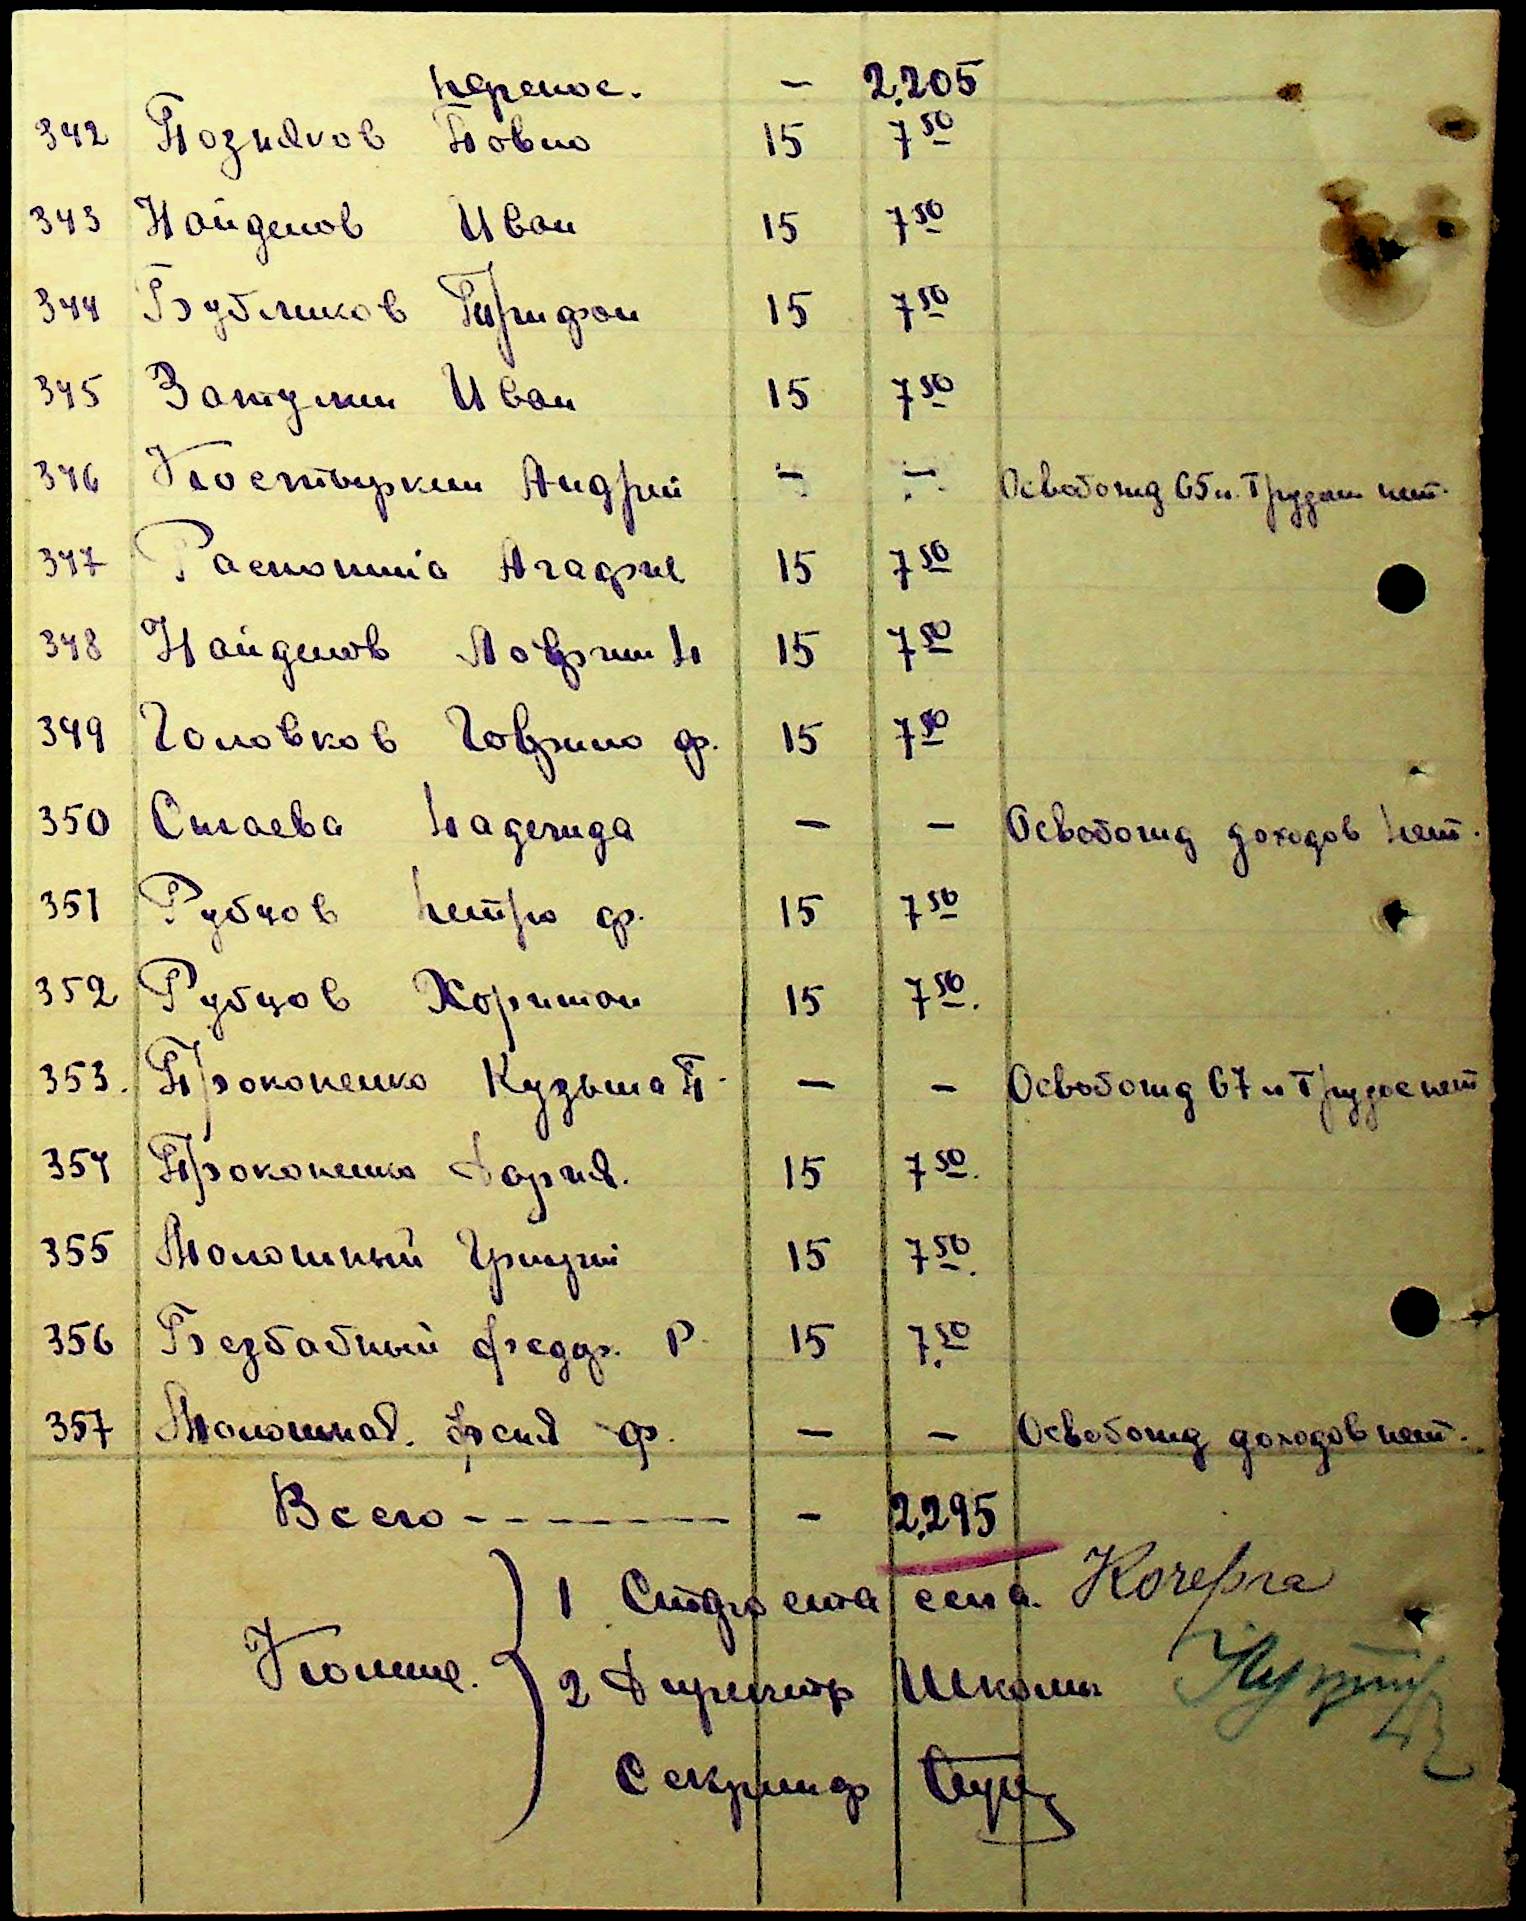 перенос. - 2.205
342 Позняков Павло 15 7 50
343 Найденов Иван 15 7 50
344 Бубликов Трифон 15 7 50
345 Затулин Иван 15 7 50
346 Костыркин Андрій - - Освобожд 65 л. Трудосп нет.
347 Агафия 15 7 50
348 Найденов Лаврин 15 7 50
349 Головков Гаврило ф. 15 7 50
350 Надежда - - Освобожд доходов нет.
351 Рубцов Петро ф. 15 7 50
352 Рубцов Харитон 15 7 50.
353. Прокопенко Кузьма П. - - Освобожд 67 л Трудосп нет
354 Прокопенко Дария. 15 7 50.
355 Молошный Грицай 15 7 50.
356 Безбабный Федор. Р. 15 7. 50
357 Молошная. ф. - - Освобожд доходов нет.
Всего - - - - - - - - - 2.295
1 Староста села. Кочерга
Комис. 2 Директор Школы
Секритар